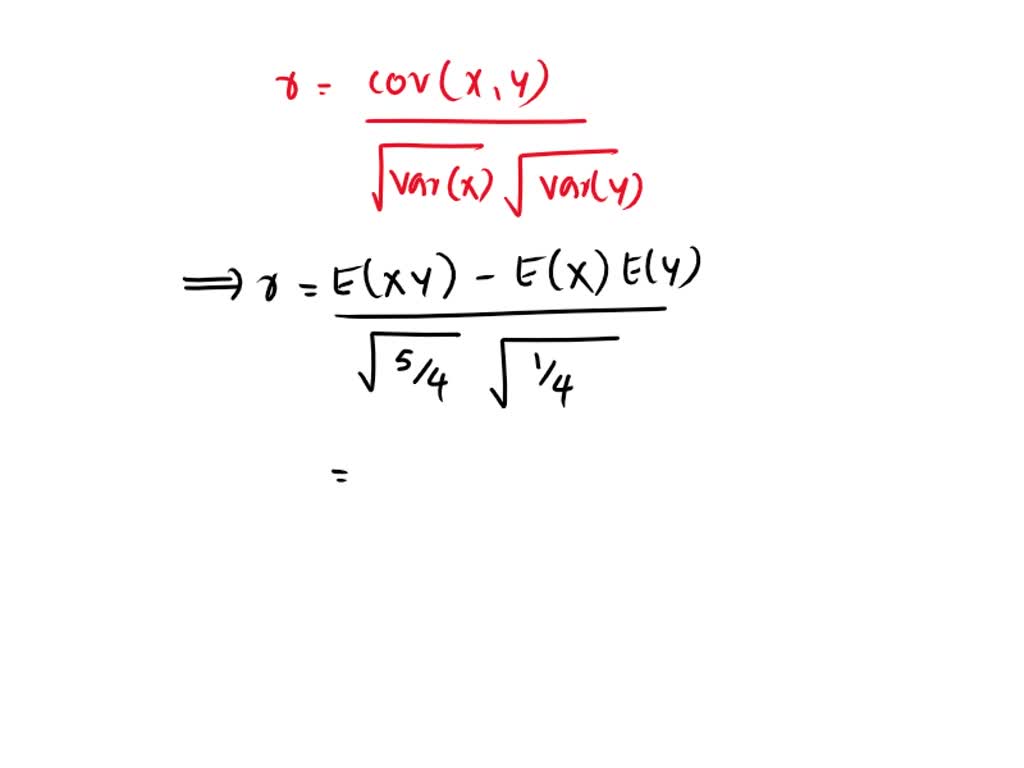 r = cov(x,y)
√var(x) √var(y)
⟹ r = E(xy) - E(x) E(y)
√5/4 √1/4
=